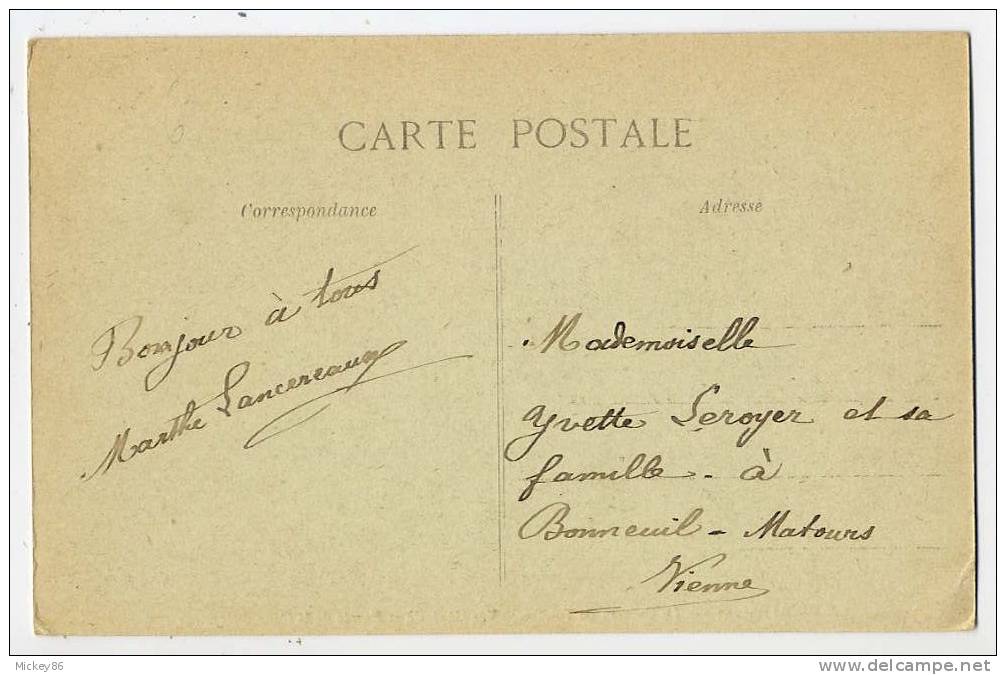 CARTE POSTALE
Correspondance
Adresse
Bonjour à tous
Marthe Lancereaux
Mademoiselle
Yvette Leroyer et sa
famille - à
Bonneuil - Matours
Vienne
Mickey86
www.delcampe.net